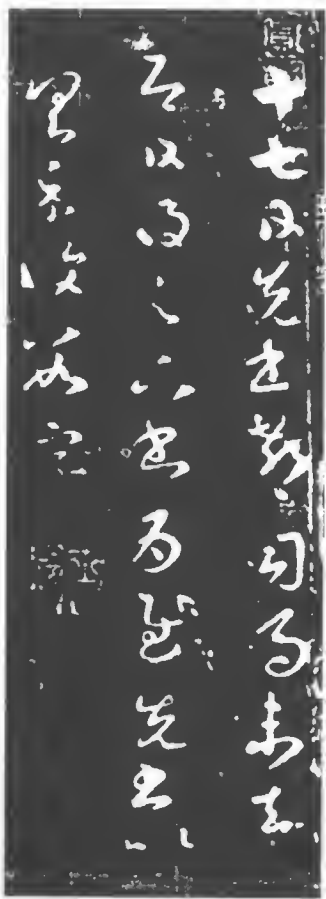 十七日先書郗司馬未去
即日得足下書為慰先書以
具示復數字